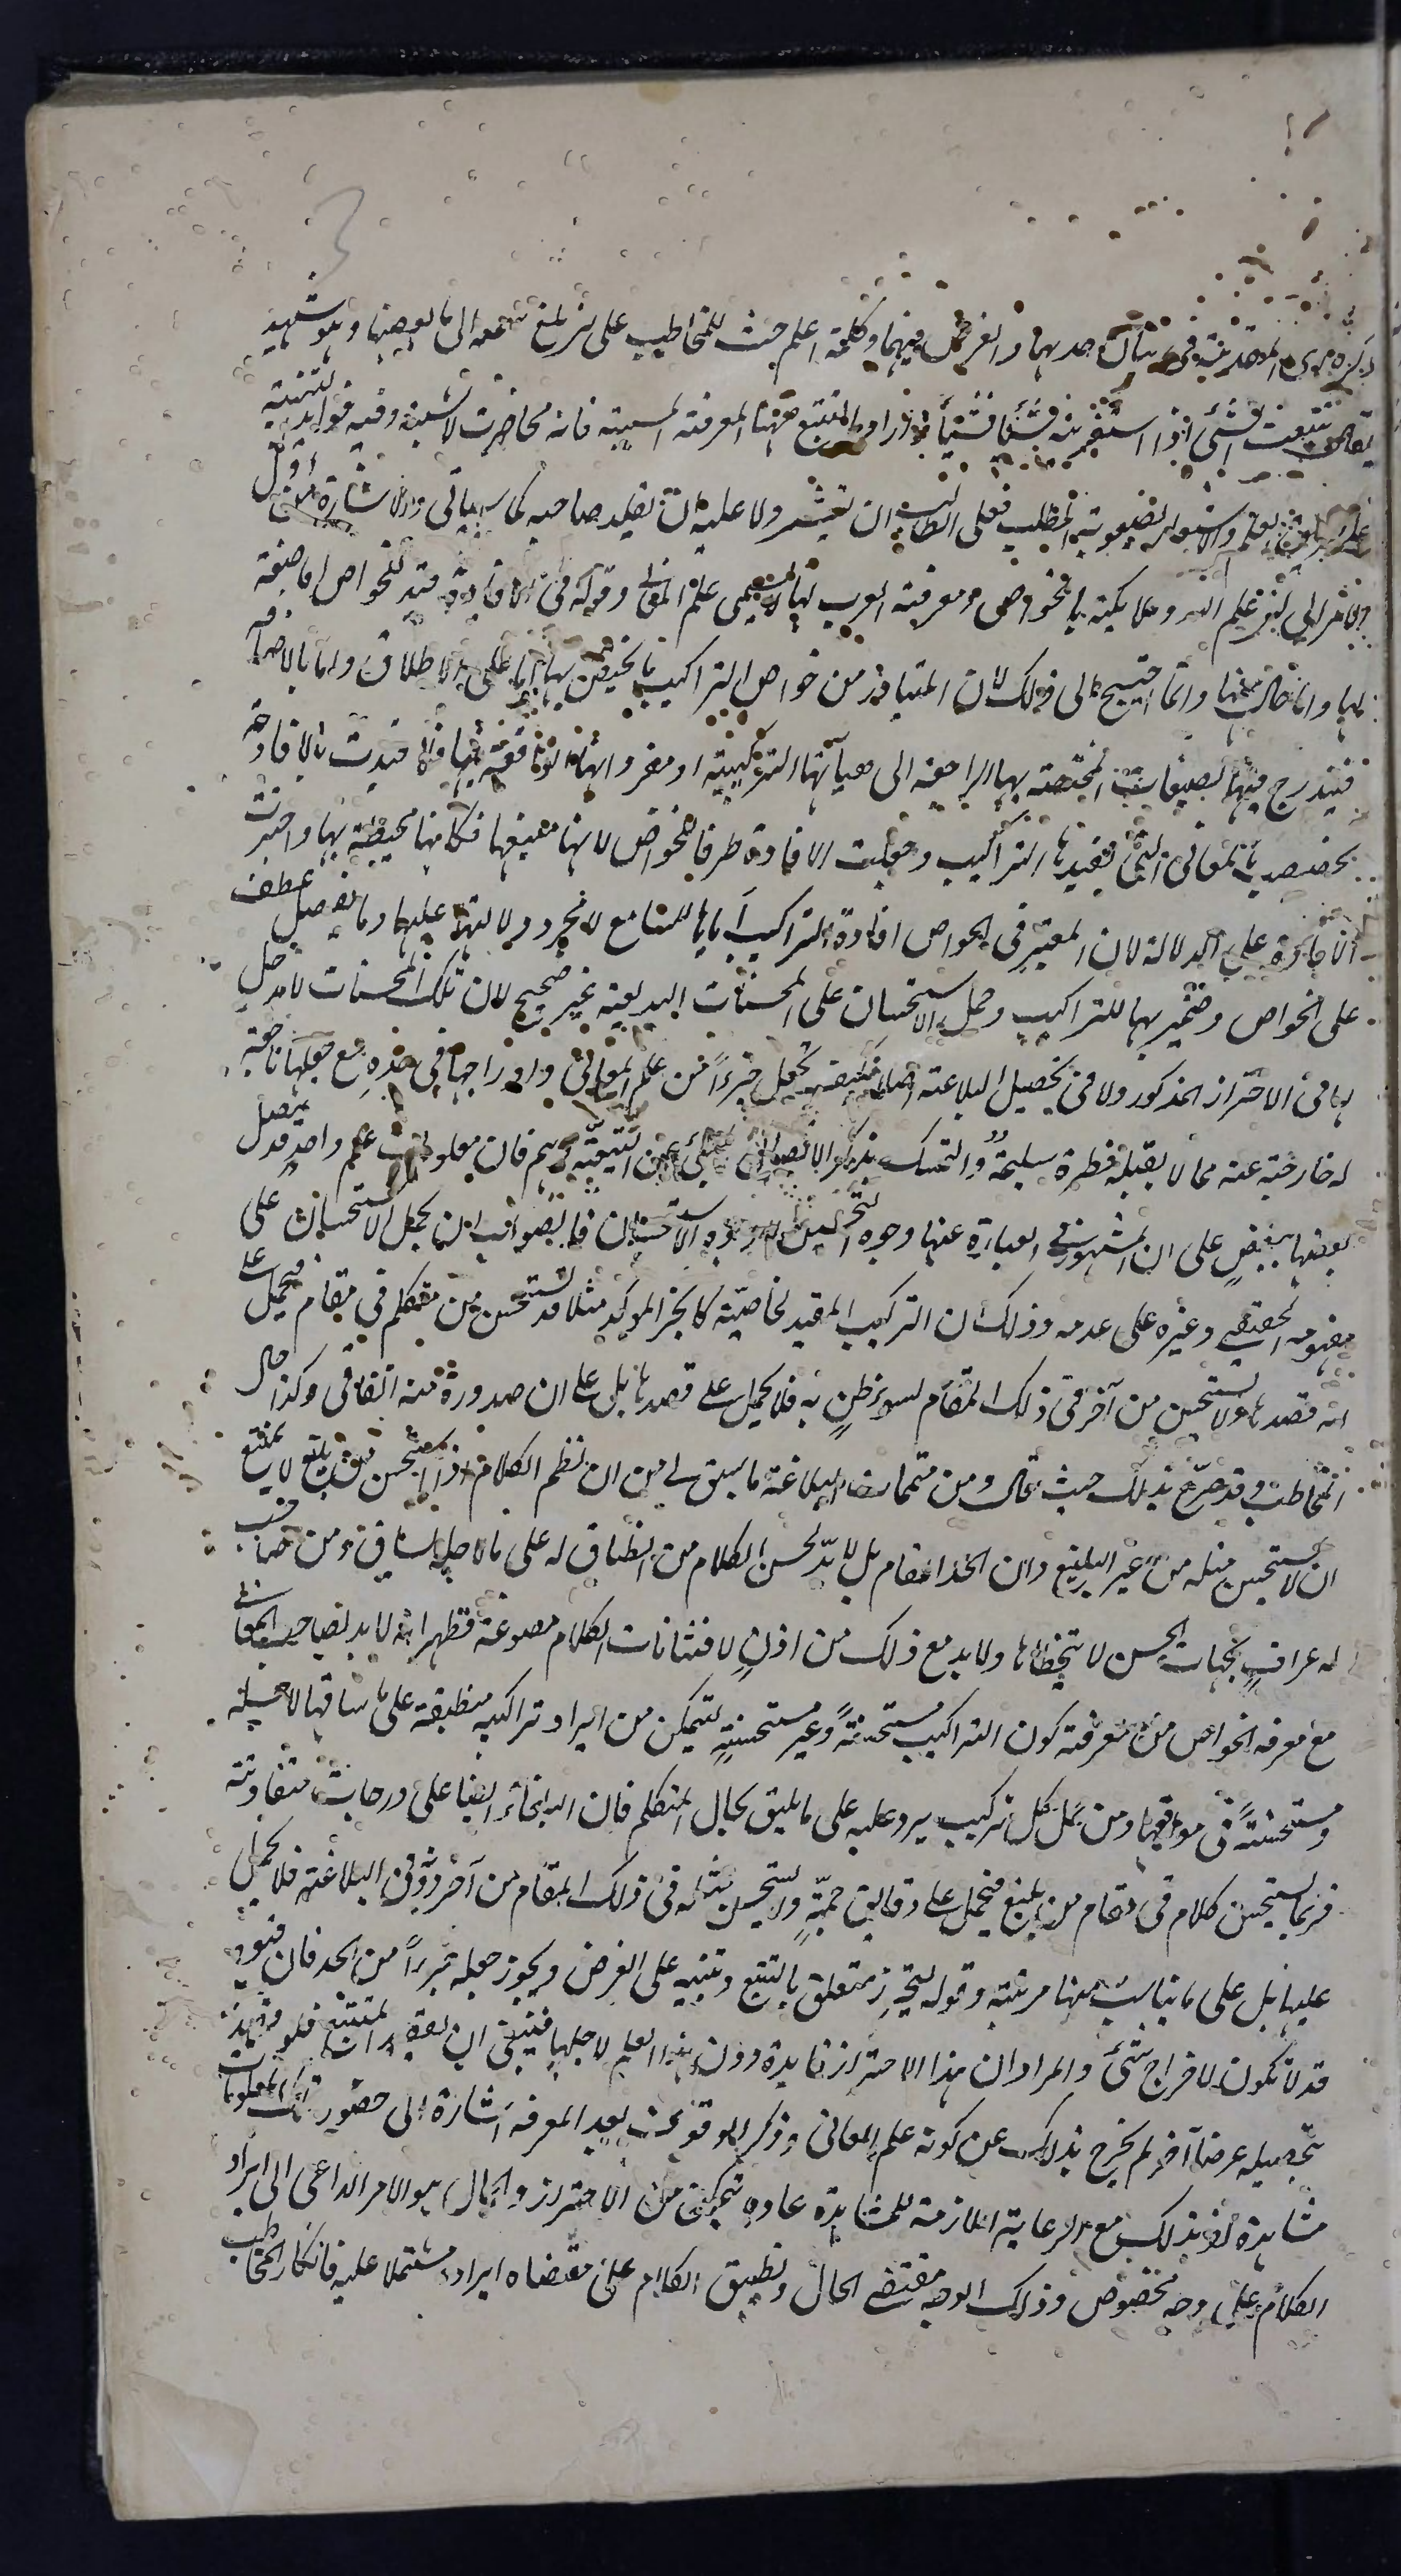 احدهما والغرض فيهما وكلمة اعلم حث للمخاطب على ان يلقى سمعه الى ما بعدها وهو شهيد
يقال تتبعت الشئ اذا استقريته شيئا فشيئا واراد بالتتبع ههنا المعرفة المسببة فانه وفيه فوايد التنبيه
العلم المطلب فعلى الطالب ان ولا عليه ان يقلد صاحبه كما سيأتى والاشارة اول
الى ان علم الله وملائكته بالخواص ومعرفة العرب بها لا يسمى علم المعانى وقوله فى الافادة قيد للخواص اما صفة
لها واما حال منها وانما احتيج الى ذلك لان المتبادر من خواص التراكيب ما يختص بها اما على الاطلاق واما بالاضافة
فيندرج فيها المختصة بها الراجعة الى هيآتها التركيبية او مفرداتها الواقعة فيها فلما قيدت بالافادة
بالمعانى التى تفيدها التراكيب وجعلت الافادة ظرفا للخواص لانها فكانها محيطة بها واختيرت
الافادة على الدلالة لان المعتبر فى الخواص افادة التراكيب اياها للسامع لا مجرد دلالتها عليها وما يتصل عطف
على الخواص وضمير بها للتراكيب وحمل الاستحسان على المحسنات البديعية غير صحيح لان تلك المحسنات لا مدخل
لها فى الاحتراز المذكور ولا فى تحصيل البلاغة اصلا فكيف تجعل جزءا من علم المعانى وادراجها فى حده مع جعلها تابعة
له خارجة عنه مما لا يقبله فطرة سليمة والتمسك بذكر الاتصال فان معلومات علم واحد قد يتصل
بعضها ببعض على ان المشهور فى العبارة عنها وجوه التحسين لا وجوه الاستحسان فالصواب ان يحمل الاستحسان على
مفهومه الحقيقى وغيره على عدمه وذلك ان التركيب المفيد لخاصية كالخبر المؤكد مثلا قد يستحسن من متكلم فى مقام فيحمل على
انه قصدها ولا يستحسن من آخر فى ذلك المقام لسوء ظن به فلا يحمل على قصدها بل على ان صدوره منه اتفاقى وكذا حال
المخاطب وقد صرح بذلك حيث قال ومن متممات البلاغة ما سبق لى من ان نظم الكلام اذا استحسن من بليغ لا يمتنع
ان لا يستحسن مثله من غير البليغ وان اتحد المقام بل لا بد لحسن الكلام من انطباق له على ما لاجله يساق ومن صاحب
له عراف بجهات الحسن لا يتخطاها ولا بد مع ذلك من اذن لافتنانات الكلام مصوغة فظهر انه لا بد لصاحب المعانى
مع معرفة الخواص من معرفة كون التراكيب مستحسنة وغير مستحسنة ليتمكن من ايراد تراكيبه منطبقة على ما ساقها لاجله
ومستحسنة فى مواقعها ومن حمل كل تركيب يرد عليه على ما يليق بحال المتكلم فان البلغاء ايضا على درجات متفاوتة
فربما يستحسن كلام فى مقام من بليغ فيحمل على دقايق جمة ولا يستحسن مثله فى ذلك المقام من آخر دونه فى البلاغة فلا يحمل
عليها بل على ما يناسب منها مرتبته وقوله ليحترز متعلق بالتتبع وتنبيه على الغرض ويجوز جعله جزءا من الحد فان قيوده
قد لا تكون لاخراج شئ والمراد ان هذا الاحتراز فايدة دون هذا العلم لاجلها فينبغى ان يقصدها المتتبع فلو قصد
بتحصيله غرضا آخر لم يخرج بذلك عن كونه علم المعانى وذكر الوقوف بعد المعرفة اشارة الى حضور تلك المعلومات
مشاهدة اذ بذلك مع الرعاية اللازمة للمشاهدة عادة يتمكن من الاحتراز والحال هو الامر الداعى الى ايراد
الكلام على وجه مخصوص وذلك الوجه مقتضى الحال وتطبيق الكلام على مقتضاه ايراده مشتملا عليه فانكار المخاطب